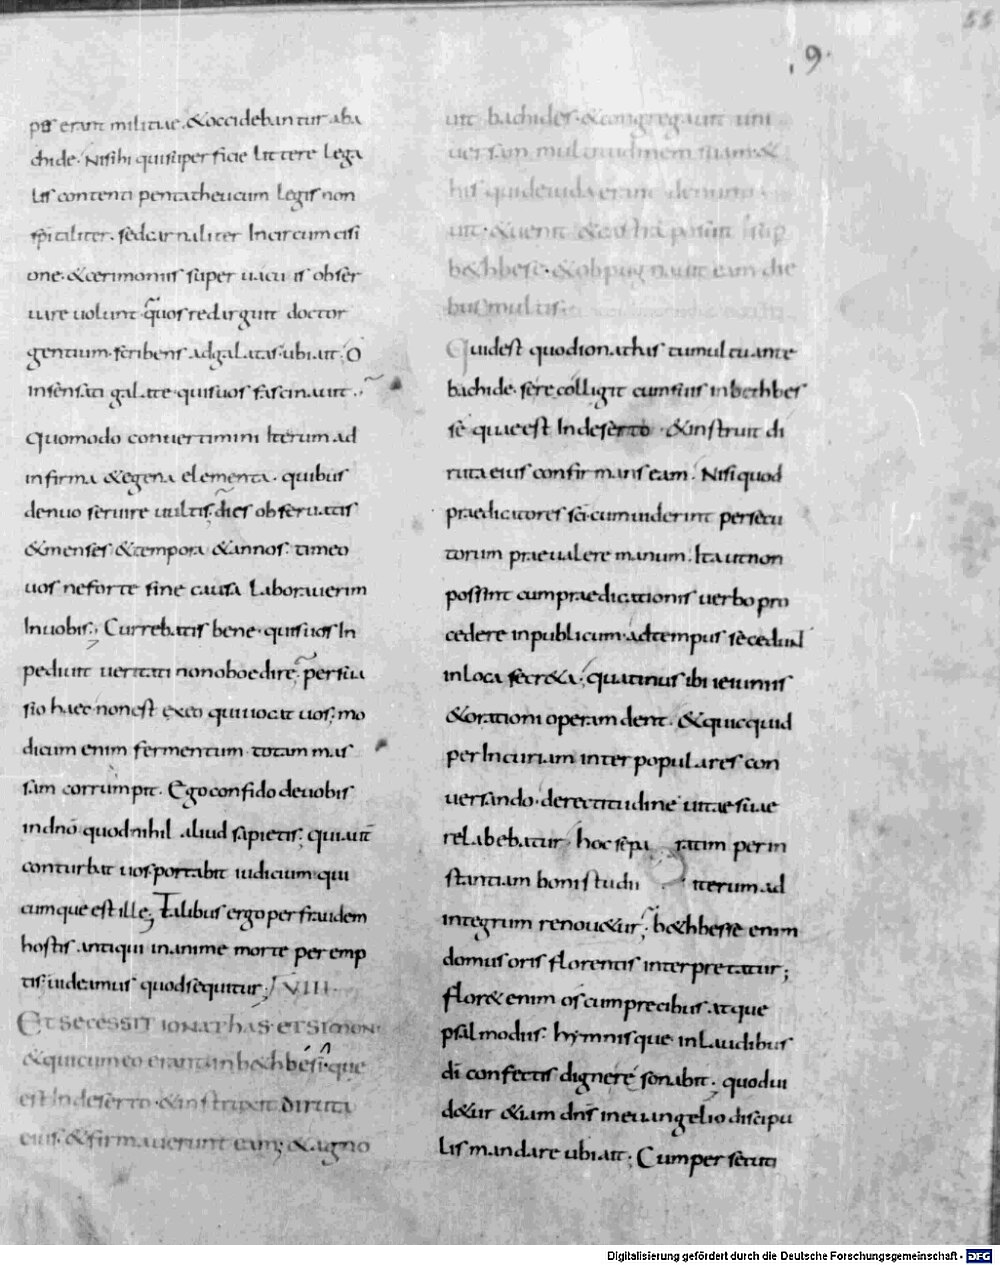 55
.9.
pti erant militiae. &occidebantur aba
chide. Nisihi quisuperficie littere lega
lis contenti pentatheucum legis non
sp̄italiter. sedcarnaliter Incircumcisi
one. &cerimoniis super uacuis obser
uare uolunt. quos redarguit doctor
gentium. scribens adgalatas. ubiait; O
insensati galatae quisuos fascinauit.
quomodo conuertimini Iterum ad
infirma &egena elementa. quibus
denuo seruire uultis; dies obseruatis
&menses &tempora &annos: timeo
uos neforte sine causa Laborauerim
Inuobis; Currebatis bene. quisuos In
pediuit ueritati nonoboedire; persua
sio haec nonest exeo quiuocat uos; mo
dicum enim fermentum totam mas
sam corrumpit. Egoconfido deuobis
indn̄o quodnihil aliud sapietis; quiaut̄
conturbat uos. portabit iudicium. qui
cumque estille; Talibus ergo per fraudem
hostis antiqui inanime morte peremp
tis. uideamus quodsequitur; VIII.
Et secessit ionathas. et simon
&quicumeo erant inb&hbesi. que
est Indeserto. &instruxit diruta
eius. &firmauerunt eam; &agno
uit bachides. &congregauit uni
uersam multitudinem suam. &
his quideiudaerant denuntia
uit. &uenit &castra posuit sup̄
b&hbesse. &obpugnauit eam die
bus multis.
Quidest quodionathas tumultuante
bachide. sese colligit cumsuis inbethbes
se quaeest Indeserto. &instruit di
ruta eius confirmans eam. Nisi quod
praedicatores sc̄i cum uiderint persecu
torum praeualere manum. Ita utnon
possint cumpraedicationis uerbo pro
cedere inpublicum. adtempus secedunt
inloca secr&a; quatinus ibi ieiuniis
&orationi operam dent. &quicquid
per Incuriam inter populares con
uersando. derectitudine uitae suae
relabebatur. hoc sepa ratim per in
stantiam boni studii iterum ad
integrum renou&ur; b&hbesse enim
domus oris florentis interpretatur;
flor& enim os cumprecibus. atque
psalmodiis. hymnisque inLaudibus
dī confectis dignere sonabit. quodui
d&ur &iam dn̄s ineuangelio discipu
lis mandare ubiait; Cum persecuti
Digitalisierung gefördert durch die Deutsche Forschungsgemeinschaft - DFG